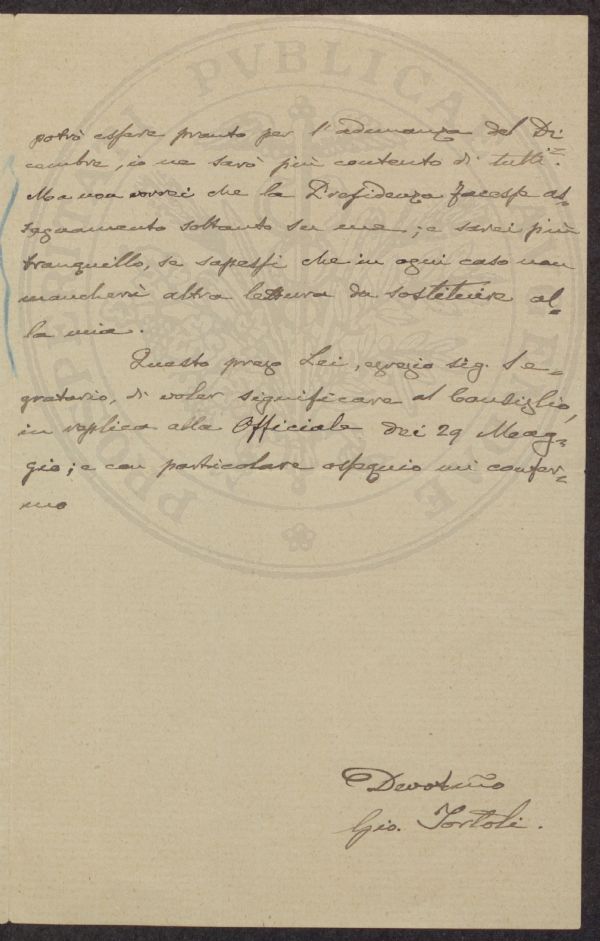 potrò essere pronto per l'adunanza del Di=
cembre, io ne sarò più contento di tutti.
Ma non vorrei che la Presidenza facesse as=
segnamento soltanto su me; e sarei più
tranquillo, se sapessi che in ogni caso non
mancherà altra lettura da sostituire al=
la mia.
Questo prego Lei, egregio sig. Se=
gretario, di voler significare al Consiglio,
in replica alla Officiale dei 29 Mag=
gio; e con particolare ossequio mi confer=
mo
Devotmo
Gio. Tortoli.
PVBLICA
PROSPERITÀ